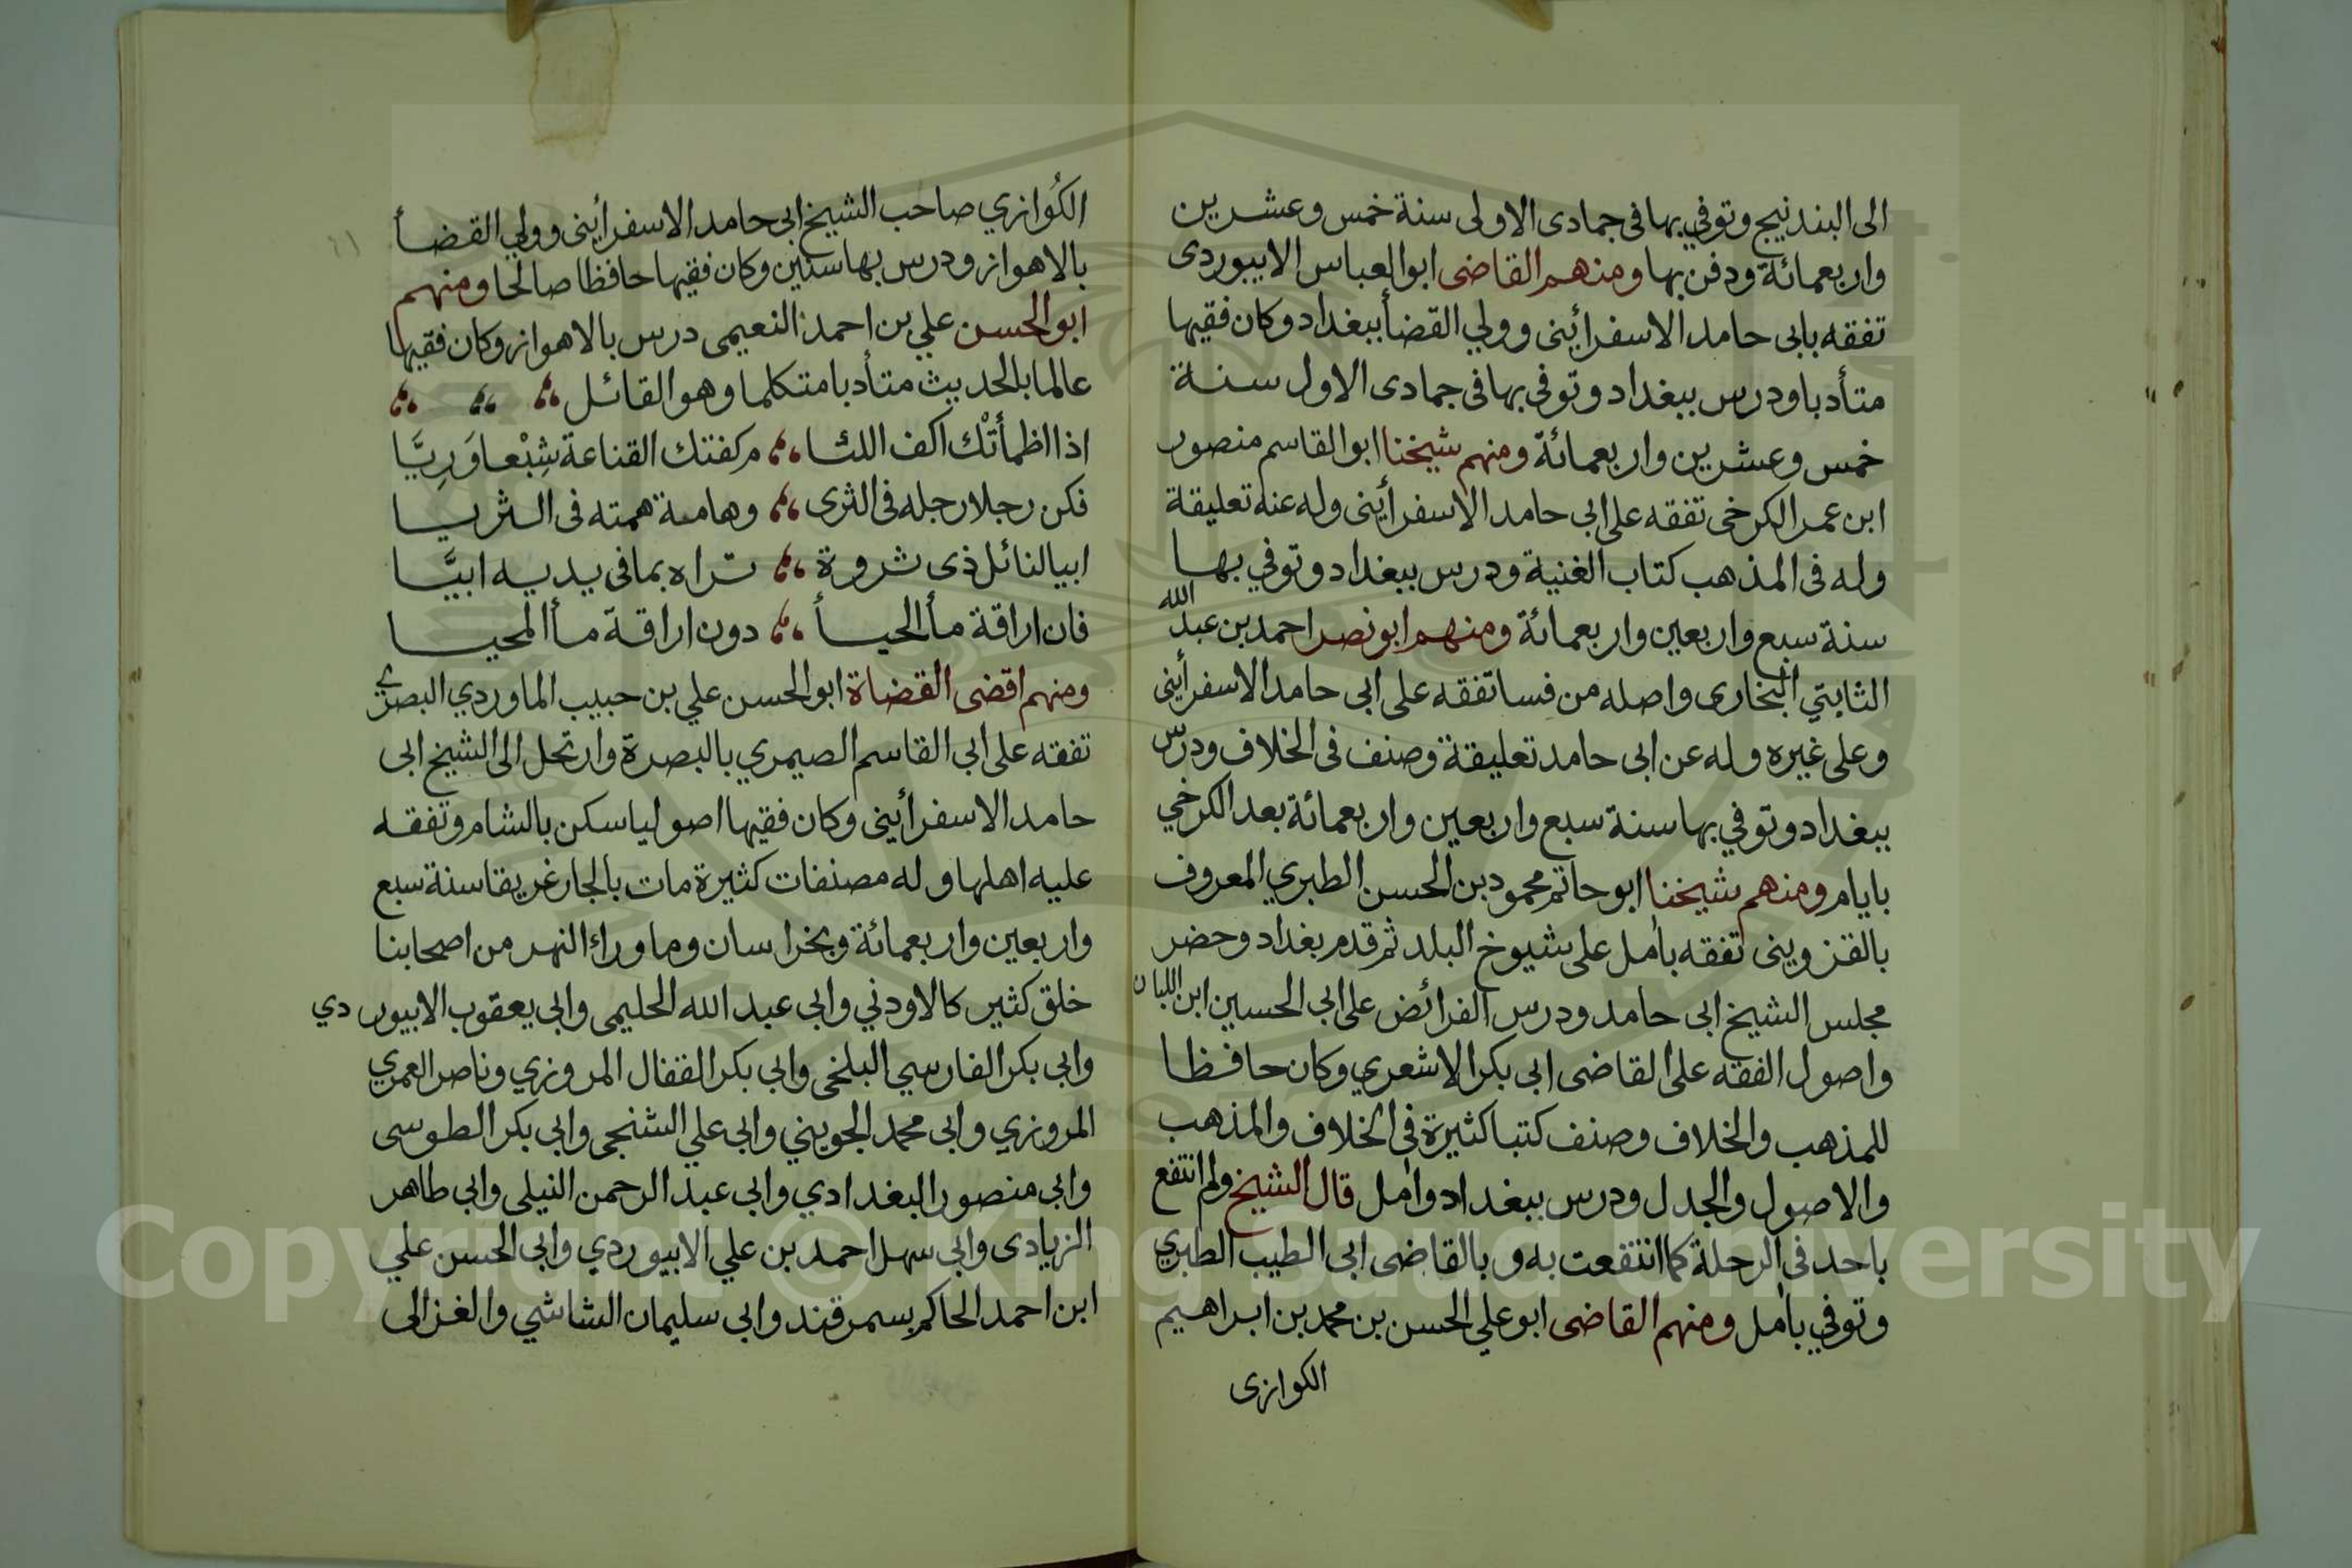 الى البندنيج وتوفي بها فى جمادى الاولى سنة خمس وعشرين
واربعمائة ودفن بها ومنهم القاضى ابو العباس الابيوردى
تفقه بابى حامد الاسفرأينى وولي القضأ ببغداد وكان فقيها
متأدبا ودرس ببغداد وتوفى بها فى جمادى الاول سنة
خمس وعشرين واربعمائة ومنهم شيخنا ابو القاسم منصور
ابن عمر الكرخى تفقه على ابي حامد الاسفرأينى وله عنه تعليقة
وله فى المذهب كتاب الغنية ودرس ببغداد وتوفي بها
سنة سبع واربعين واربعمائة ومنهم ابو نصر احمد بن عبد الله
الثابتي البخارى واصله من فسا تفقه على ابى حامد الاسفرأينى
وعلى غيره وله عن ابى حامد تعليقة وصنف فى الخلاف ودرس
ببغداد وتوفي بها سنة سبع واربعين واربعمائة بعد الكرخي
بايام ومنهم شيخنا ابو حاتم محمود بن الحسن الطبري المعروف
بالقزوينى تفقه بامل على شيوخ البلد ثم قدم بغداد وحضر
مجلس الشيخ ابى حامد ودرس الفرائض على ابي الحسين ابن اللبان
واصول الفقه على القاضى ابى بكر الاشعري وكان حافظا
للمذهب والخلاف وصنف كتبا كثيرة فى الخلاف والمذهب
والاصول والجدل ودرس ببغداد وامل قال الشيخ ولم انتفع
باحد فى الرحلة كما انتفعت به وبالقاضى ابى الطيب الطبري
وتوفي بامل ومنهم القاضى ابو علي الحسن بن محمد بن ابراهيم
الكوازى
الكُوازي صاحب الشيخ ابى حامد الاسفرأينى وولي القضأ
بالاهواز ودرس بها سنين وكان فقيها حافظا صالحا ومنهم
ابو الحسن علي بن احمد النعيمى درس بالاهواز وكان فقيها
عالما بالحديث متأدبا متكلما وهو القائل
اذا اظمأتْك اكف اللئا ، م كفتك القناعة شِبْعا وَرِيَّا
فكن رجلا رجله فى الثرى ، وهامة همته فى الثريا
ابيا لنائل ذى ثروة ، تراه بما فى يديه ابيَّا
فان اراقة مأ الحيأ ، دون اراقة مأ المحيا
ومنهم اقضى القضاة ابو الحسن علي بن حبيب الماوردي البصري
تفقه على ابي القاسم الصيمري بالبصرة وارتحل الى الشيخ ابى
حامد الاسفرأينى وكان فقيها اصوليا سكن بالشام وتفقه
عليه اهلها وله مصنفات كثيرة مات بالجار غريقا سنة سبع
واربعين واربعمائة وبخراسان وماوراء النهر من اصحابنا
خلق كثير كالاودني وابي عبد الله الحليمى وابي يعقوب الابيوردي
وابى بكر الفارسي البلخى وابي بكر القفال المروزي وناصر العمري
المروزي وابى محمد الجويني وابى علي الشنجى وابي بكر الطوسى
وابى منصور البغدادي وابى عبد الرحمن النيلى وابي طاهر
الزيادى وابي سهل احمد بن علي الابيوردي وابي الحسن علي
ابن احمد الحاكم بسمرقند وابي سليمان الشاشي والغزالى
Copyright © King Saud University